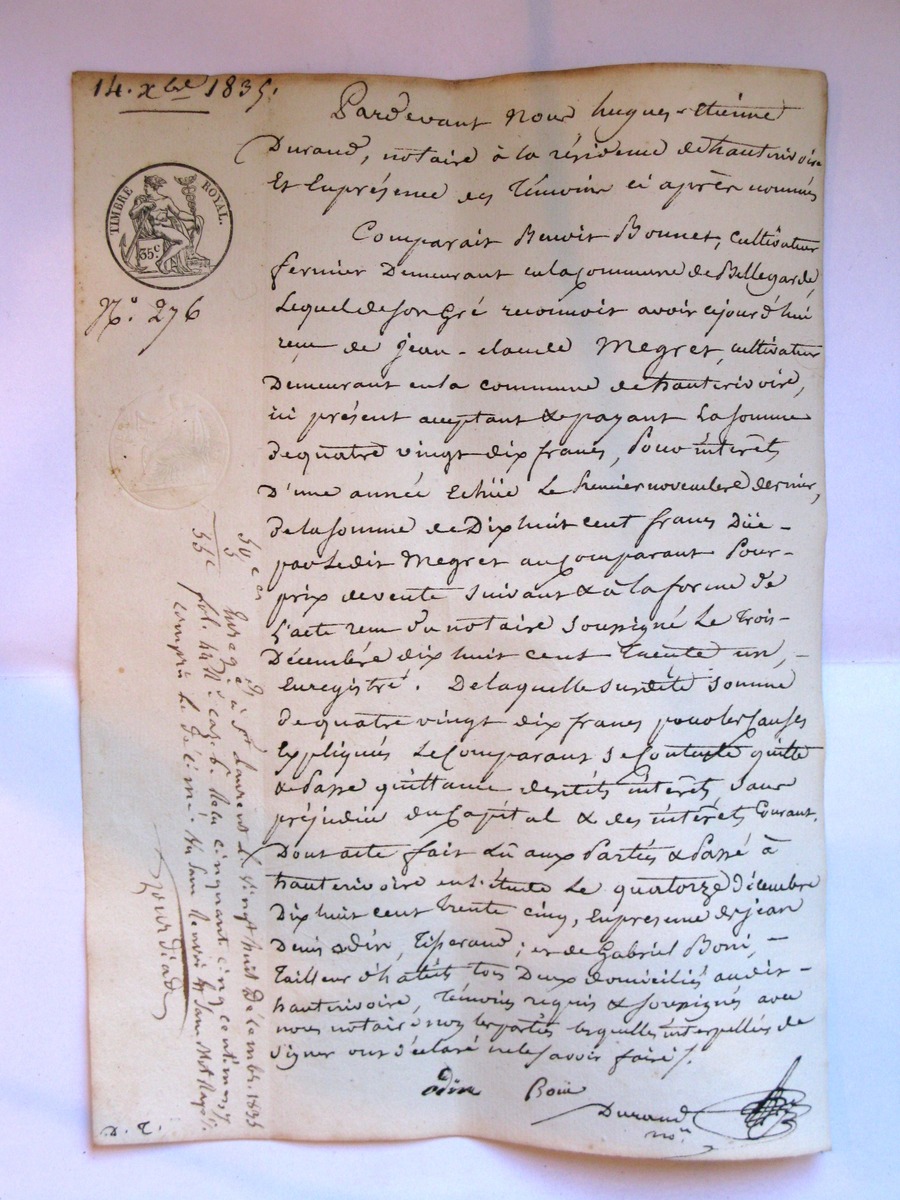 14. xbre 1835.
TIMBRE ROYAL.
35 c.
No. 276
Pardevant Nous hugues-Etienne
Durand, notaire à la résidence de hauterivoire
Et En présence des témoins ci après nommés
Comparait Benoit Bonnet, cultivateur
fermier Demeurant en la Commune de Bellegarde
Lequel de Son Gré reconnoit avoir cejourd'hui
reçu de jean-claude Megret, cultivateur
Demeurant en la commune de hauterivoire,
ici présent acceptant & payant La somme
de quatre vingt dix francs, Pour intérêts
D'une année Echüe Le Premier novembre dernier,
de la somme de Dix huit cent francs Düe
par Ledit Megret au Comparant Pour
prix de vente suivant & à la forme de
L'acte reçu du notaire soussigné Le trois
Décembre dix huit cent trente un,
Enregistré. De laquelle susdite somme
de quatre vingt dix francs pour les causes
Expliqués Le Comparant se Contente quitte
& Passe quittance desdits intérêts sans
préjudice du Capital & des intérêts Courant.
Dont acte fait Lû aux Parties & Passé à
hauterivoire en l'étude Le quatorze Décembre
Dix huit cent trente cinq, En présence de jean
Denis Odin, Tisserand; et de Gabriel Boni,
Tailleur d'habits tous Deux domiciliés audit
hauterivoire, Témoins requis & soussignés avec
nous notaire non les parties lesquelles interpellées de
signer ont déclaré ne le savoir faire /.
Odin Boni
Durand
nore
50 c
5
55 c
Enregé à St Laurent le vingt huit Décembre 1835
fol. 44 Vo case 6. Reçu cinquante cinq centimes
compris le décime
Jourdiad
D. T.